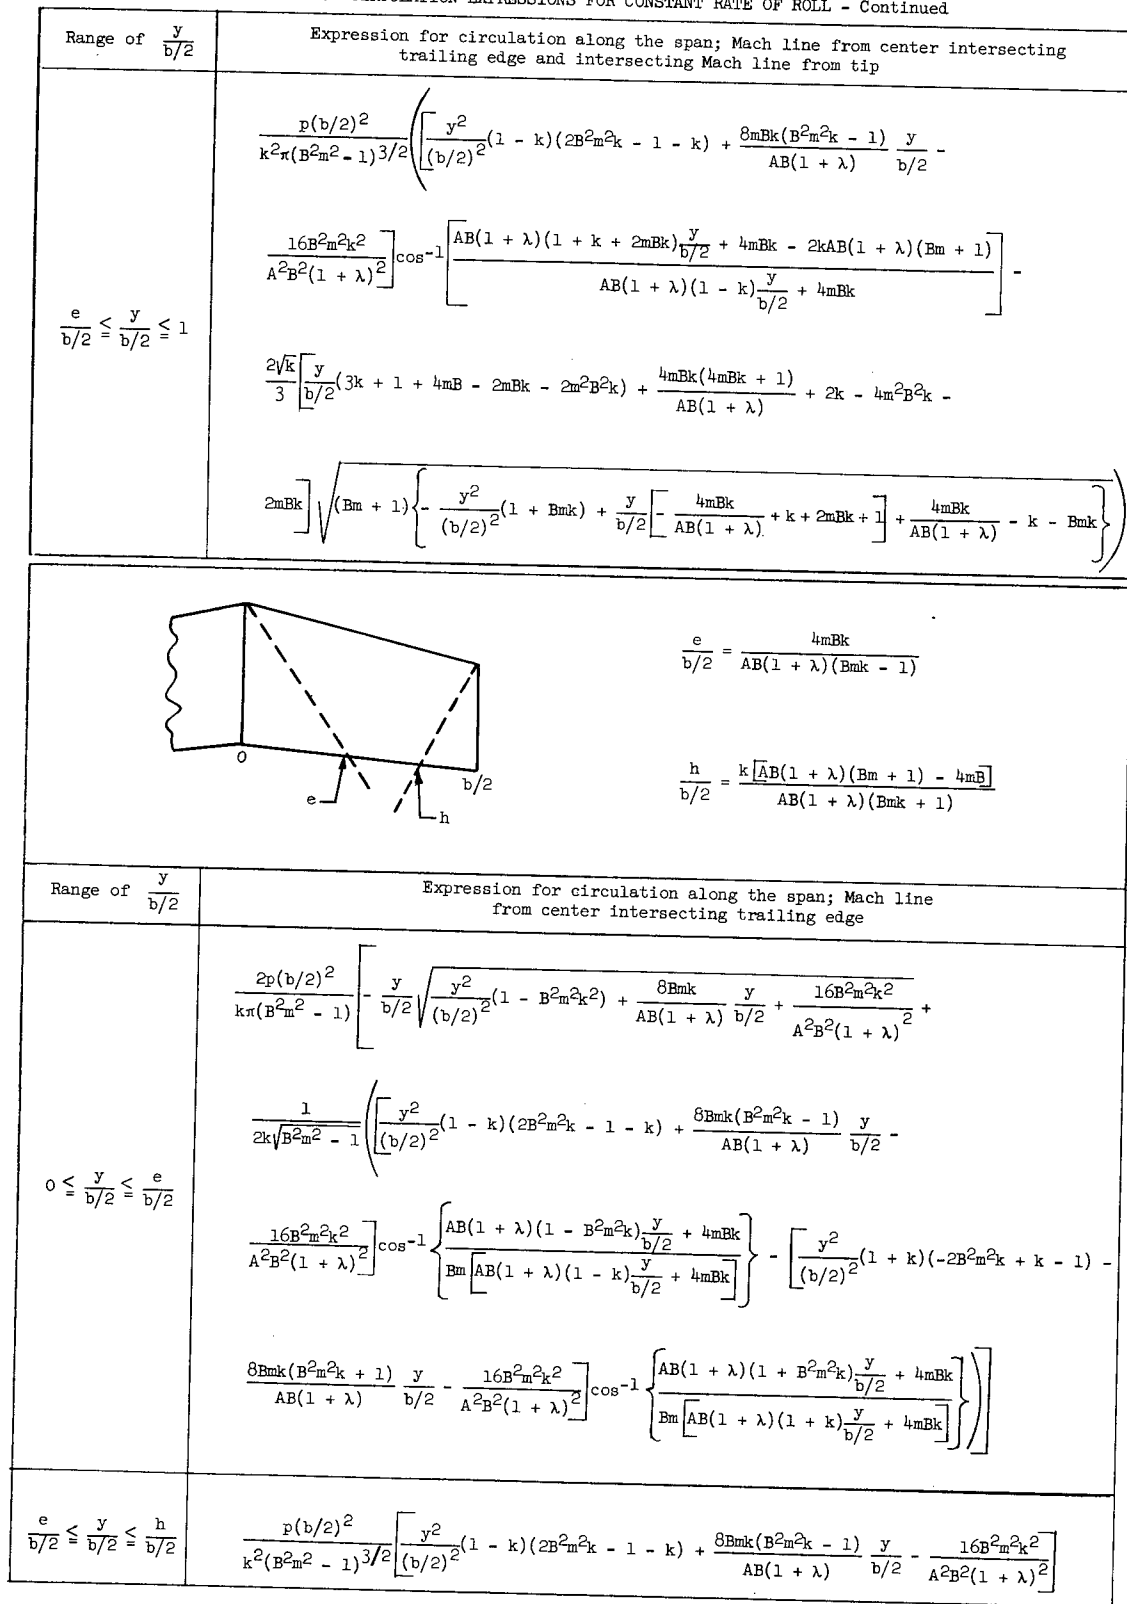 EXPRESSIONS FOR CONSTANT RATE OF ROLL - Continued
Range of y/(b/2)
Expression for circulation along the span; Mach line from center intersecting
trailing edge and intersecting Mach line from tip
e/(b/2) ≦ y/(b/2) ≦ 1
p(b/2)²/(k²π(B²m² - 1)^3/2) ([y²/(b/2)² (1 - k)(2B²m²k - 1 - k) + 8mBk(B²m²k - 1)/(AB(1 + λ)) y/(b/2) -
16B²m²k²/(A²B²(1 + λ)²)] cos⁻¹[(AB(1 + λ)(1 + k + 2mBk) y/(b/2) + 4mBk - 2kAB(1 + λ)(Bm + 1))/(AB(1 + λ)(1 - k) y/(b/2) + 4mBk)] -
2√k/3 [y/(b/2) (3k + 1 + 4mB - 2mBk - 2m²B²k) + 4mBk(4mBk + 1)/(AB(1 + λ)) + 2k - 4m²B²k -
2mBk] √((Bm + 1){- y²/(b/2)² (1 + Bmk) + y/(b/2) [- 4mBk/(AB(1 + λ)) + k + 2mBk + 1] + 4mBk/(AB(1 + λ)) - k - Bmk}))
e/(b/2) = 4mBk/(AB(1 + λ)(Bmk - 1))
h/(b/2) = k[AB(1 + λ)(Bm + 1) - 4mB]/(AB(1 + λ)(Bmk + 1))
0
b/2
e
h
Range of y/(b/2)
Expression for circulation along the span; Mach line
from center intersecting trailing edge
0 ≦ y/(b/2) ≦ e/(b/2)
2p(b/2)²/(kπ(B²m² - 1)) [- y/(b/2) √(y²/(b/2)² (1 - B²m²k²) + 8Bmk/(AB(1 + λ)) y/(b/2) + 16B²m²k²/(A²B²(1 + λ)²)) +
1/(2k√(B²m² - 1)) ([y²/(b/2)² (1 - k)(2B²m²k - 1 - k) + 8Bmk(B²m²k - 1)/(AB(1 + λ)) y/(b/2) -
16B²m²k²/(A²B²(1 + λ)²)] cos⁻¹{(AB(1 + λ)(1 - B²m²k) y/(b/2) + 4mBk)/(Bm[AB(1 + λ)(1 - k) y/(b/2) + 4mBk])} - [y²/(b/2)² (1 + k)(-2B²m²k + k - 1) -
8Bmk(B²m²k + 1)/(AB(1 + λ)) y/(b/2) - 16B²m²k²/(A²B²(1 + λ)²)] cos⁻¹{(AB(1 + λ)(1 + B²m²k) y/(b/2) + 4mBk)/(Bm[AB(1 + λ)(1 + k) y/(b/2) + 4mBk])})]
e/(b/2) ≦ y/(b/2) ≦ h/(b/2)
p(b/2)²/(k²(B²m² - 1)^3/2) [y²/(b/2)² (1 - k)(2B²m²k - 1 - k) + 8Bmk(B²m²k - 1)/(AB(1 + λ)) y/(b/2) - 16B²m²k²/(A²B²(1 + λ)²)]